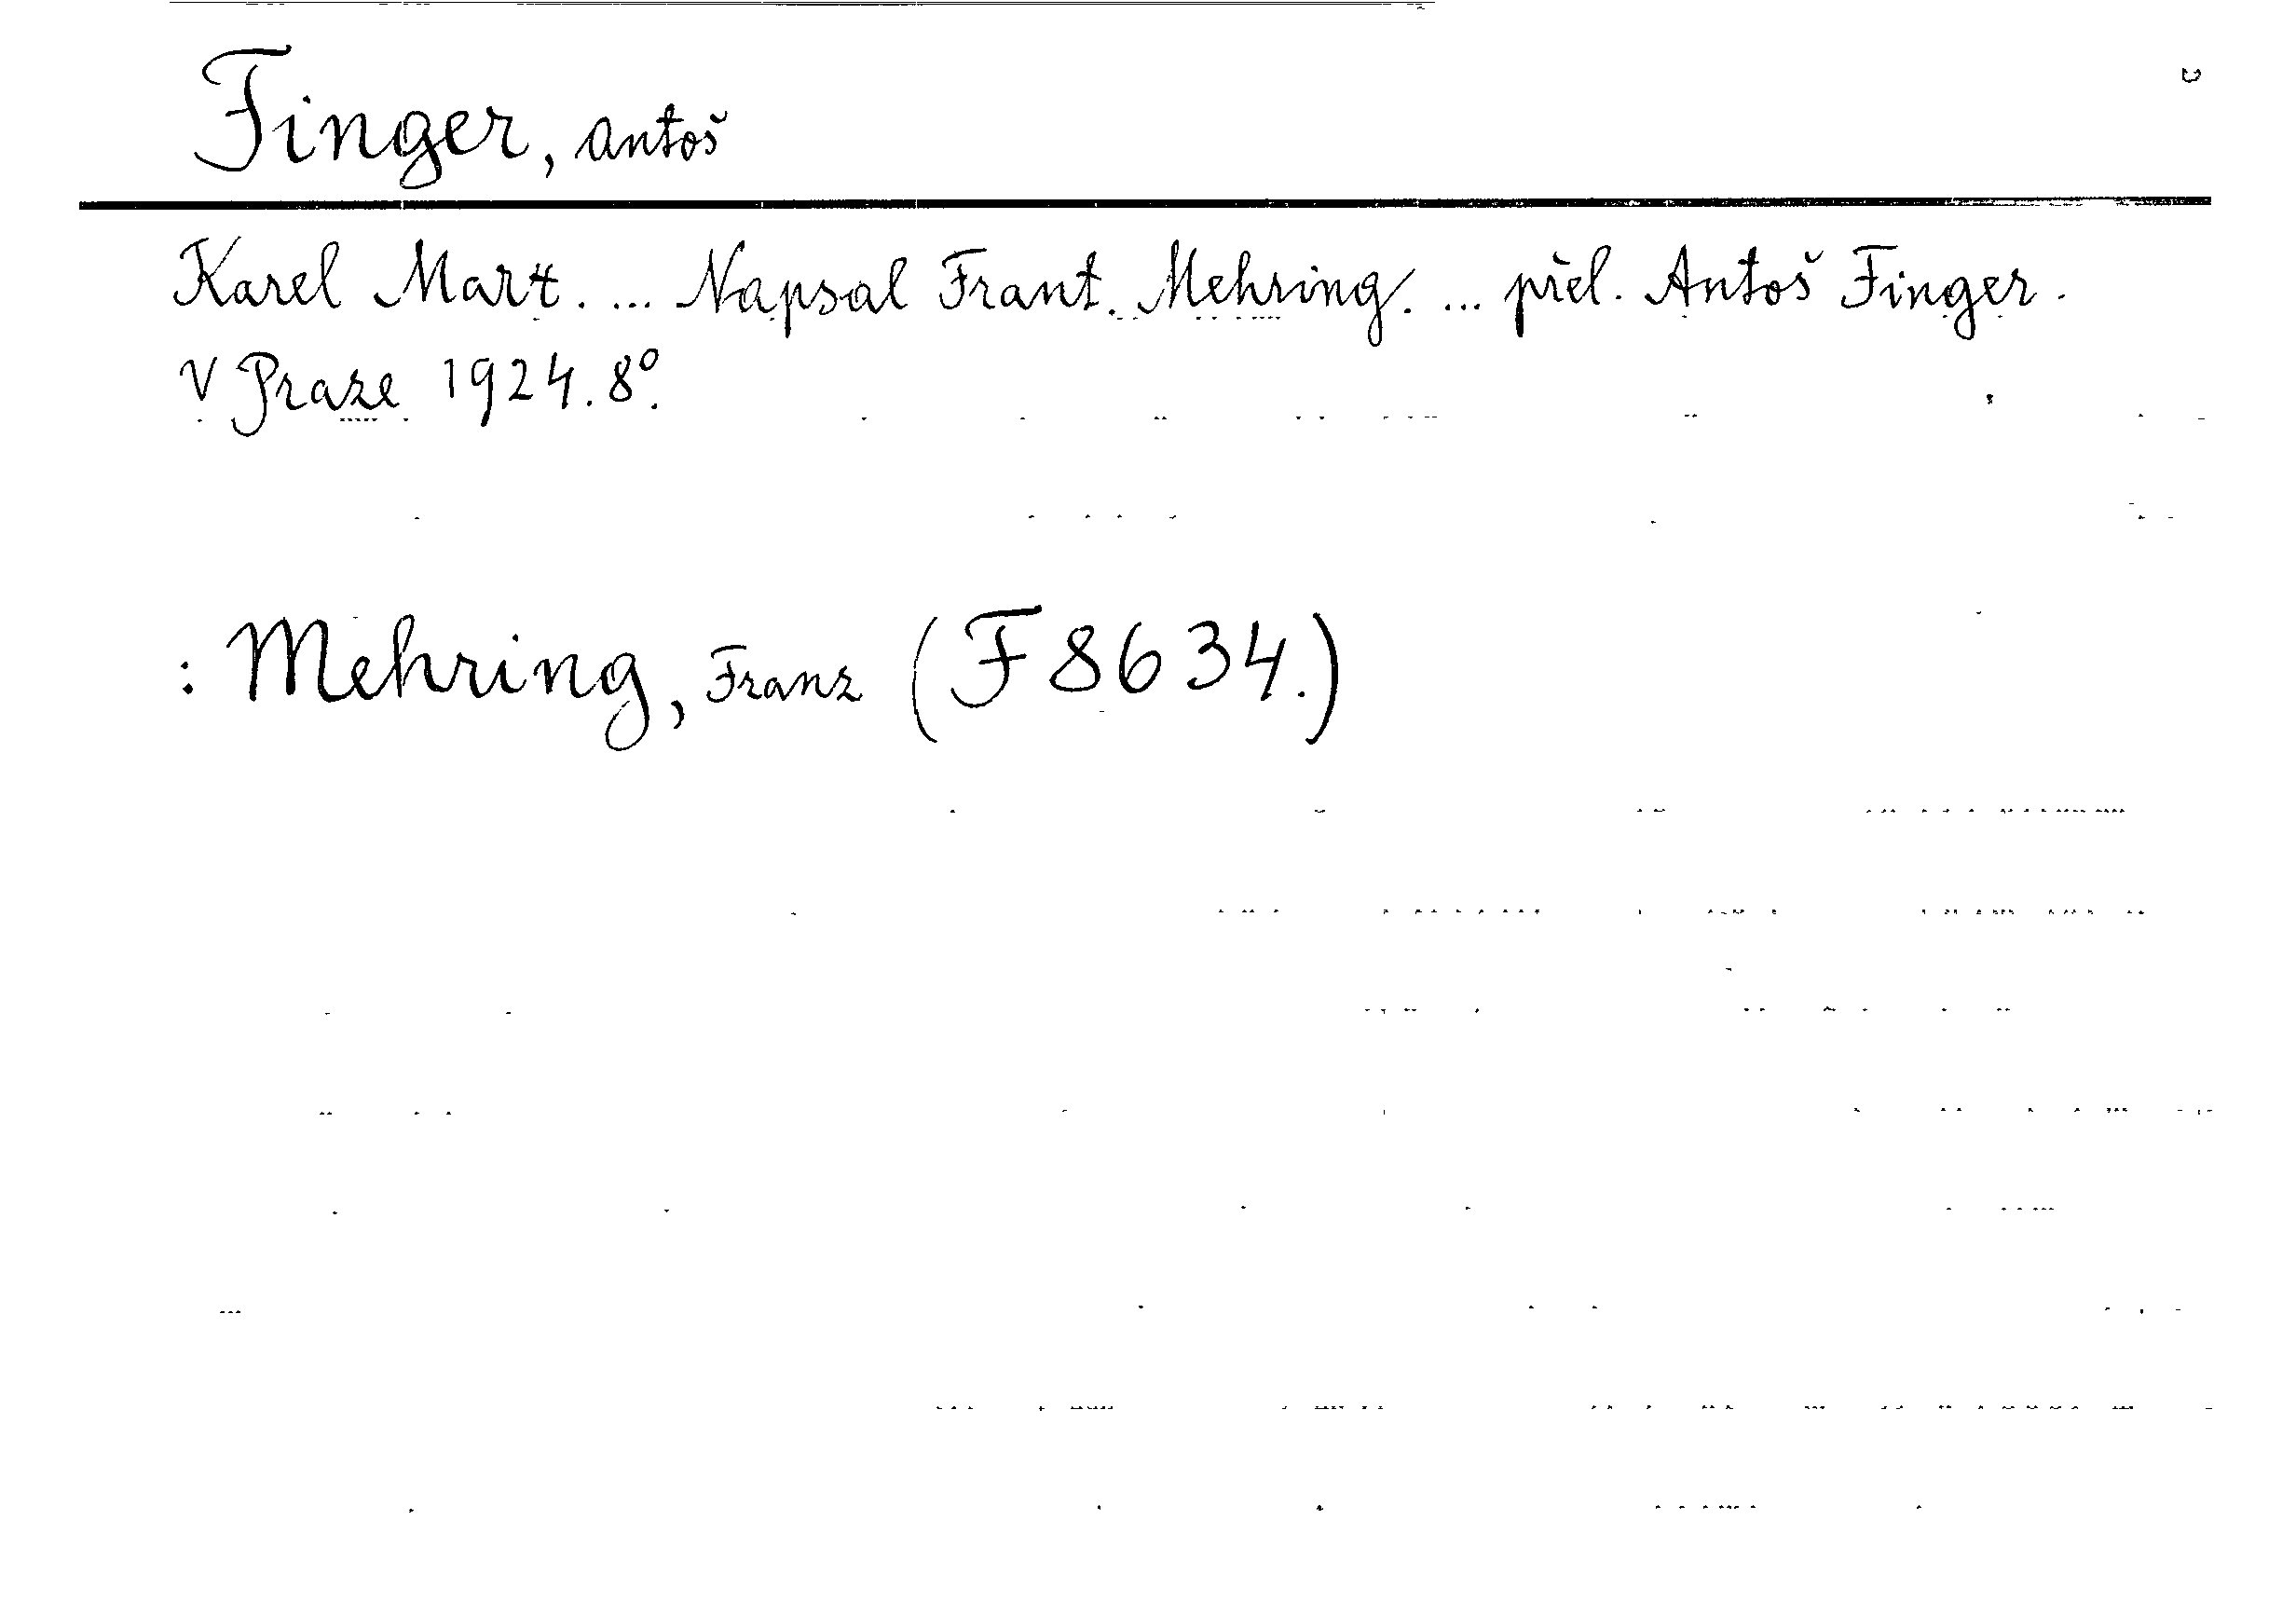 Finger, Antoš
Karel Marx. ... Napsal Frant. Mehring. ... přel. Antoš Finger.
V Praze 1924. 8°.
: Mehring, Franz (F 8634.)